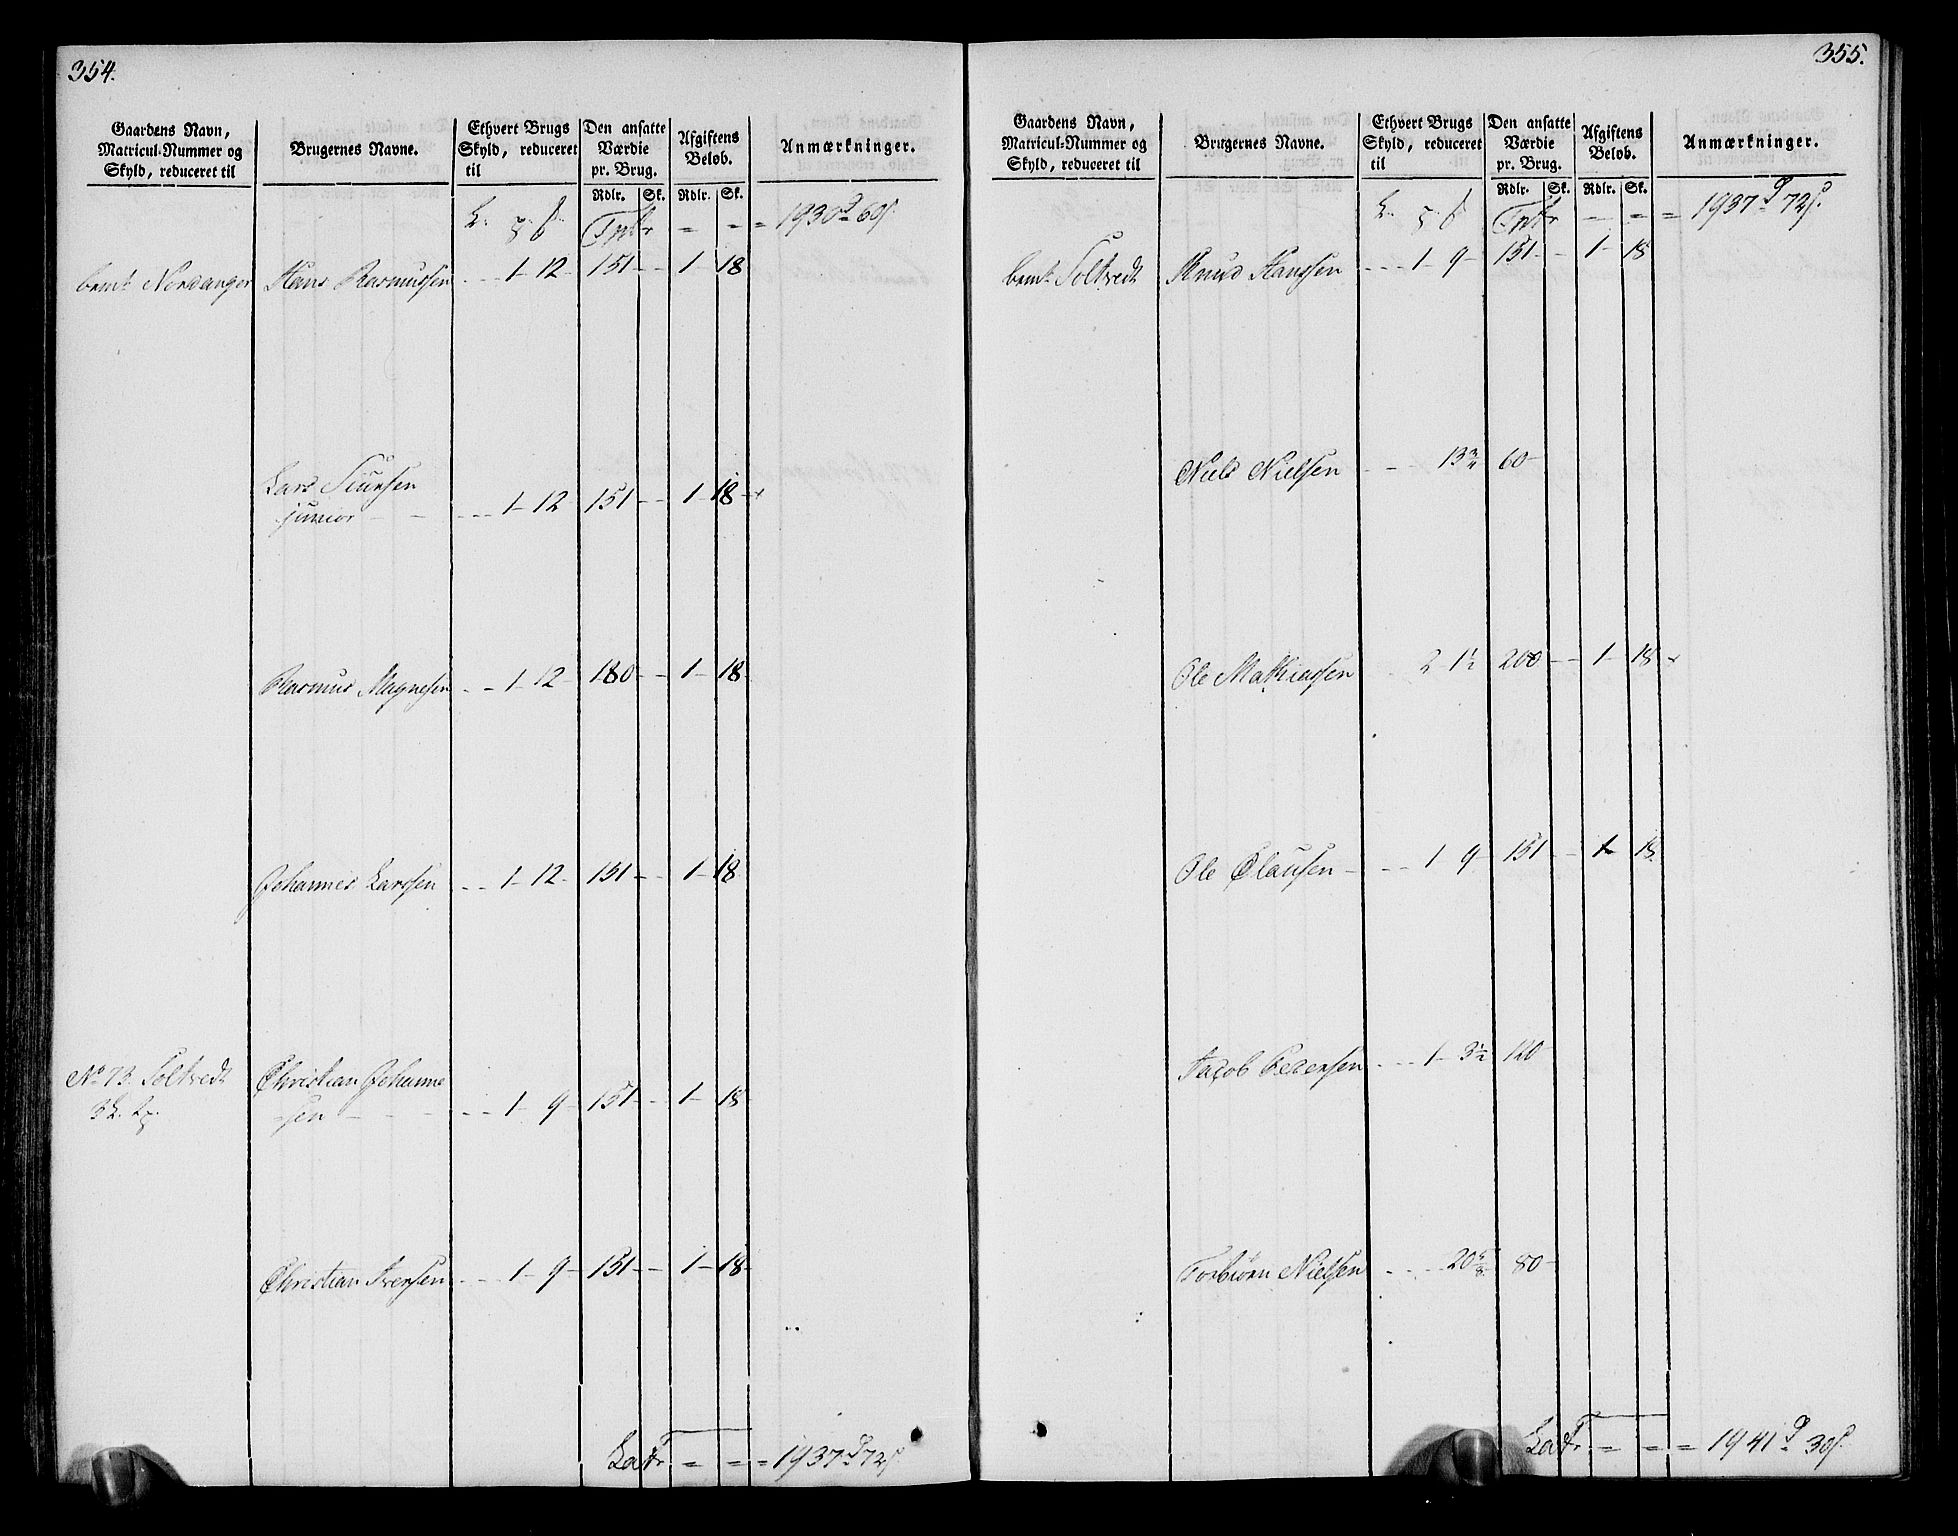 354.
Gaardens Navn, Matricul-Nummer og Skyld, reduceret til
Brugernes Navne.
Ethvert Brugs Skyld, reduceret til
Den ansatte Værdie pr. Brug.
Afgiftens Beløb.
Anmærkninger.
Rdlr. Sk. Rdlr. Sk.
Tptr = = = 1930 60
bemt Nordanger Hans Rasmussen - - - 1 - 12 - 151 - - 1 - 18
Lars Siursen
junior - - - - - 1 - 12 - 151 - - 1 - 18 -
Rasmus Magnesen - - 1 - 12 - 180 - - 1 - 18 -
Johannes Larssen - - 1 - 12 - 151 - - 1 - 18
No 73. Toltvedt Christian Johanne
sen - - - - 1 - 9 - 151 - - 1 - 18 -
Christian Iversen - - - 1 - 9 - 151 - - 1 - 18 -
Latr = = = 1937 72
355.
Gaardens Navn, Matricul-Nummer og Skyld, reduceret til
Brugernes Navne.
Ethvert Brugs Skyld, reduceret til
Den ansatte Værdie pr. Brug.
Afgiftens Beløb.
Anmærkninger.
Rdlr. Sk. Rdlr. Sk.
Tptr = = = 1937 72
bemt Toltvedt Knud Hanssen - - - 1 - 9 - 151 - - 1 - 18
Niels Nielsen - - 13 3/4 60 -
Ole Mathiassen 2 1 1/2 200 - - 1 - 18
Ole Olausen - - - 1 9 - 151 - - 1 - 18
Jacob Pedersen - - - 1 - 3 1/2 120 -
Torbiørn Nielsen - - - - 20 5/8 80 -
Latr = = = 1941 30